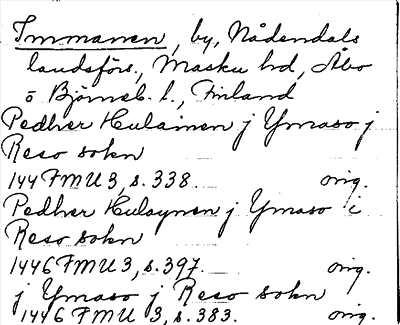 Immanen, by, Nådendals
landsförs., Masku hd, Åbo
o Björneb. l., Finland
Pedher Hulainen j Ymaso j
Reso sokn
144 FMU 3, s. 338. orig.
Pedher Hulaynen j Ymaso i
Reso sokn
1446 FMU 3, s. 397. orig.
j Ymaso j Reso sokn
1446 FMU 3, s. 383. orig.